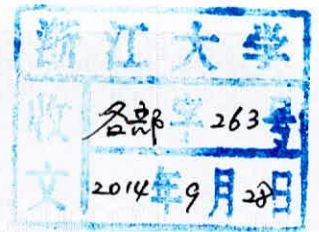 浙江大学
收文
各部字263号
2014年9月28日